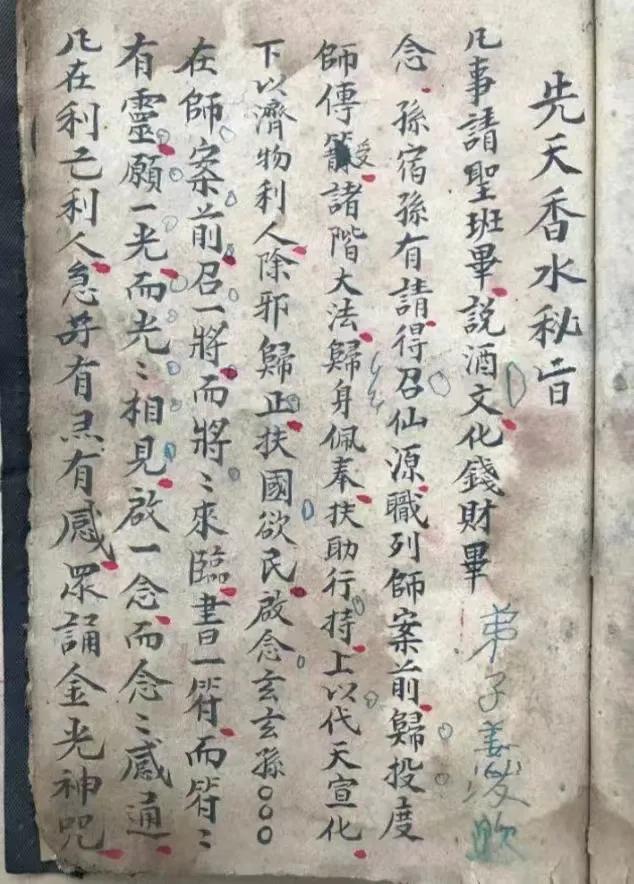 先天香水秘旨
凡事請聖班畢說酒文化錢財畢
弟子姜
念孫宿孫有請得召仙源職列師案前歸投度
師傳受諸階大法歸身佩奉扶助行持上以代天宣化
下以濟物利人除邪歸正扶國欲民啟念玄玄孫○○○
在師案前召一將而將〻來臨書一符而符〻
有靈願一光而光〻相見啟一念而念〻感通
凡在利己利人急  有灵有感眾誦金光神咒